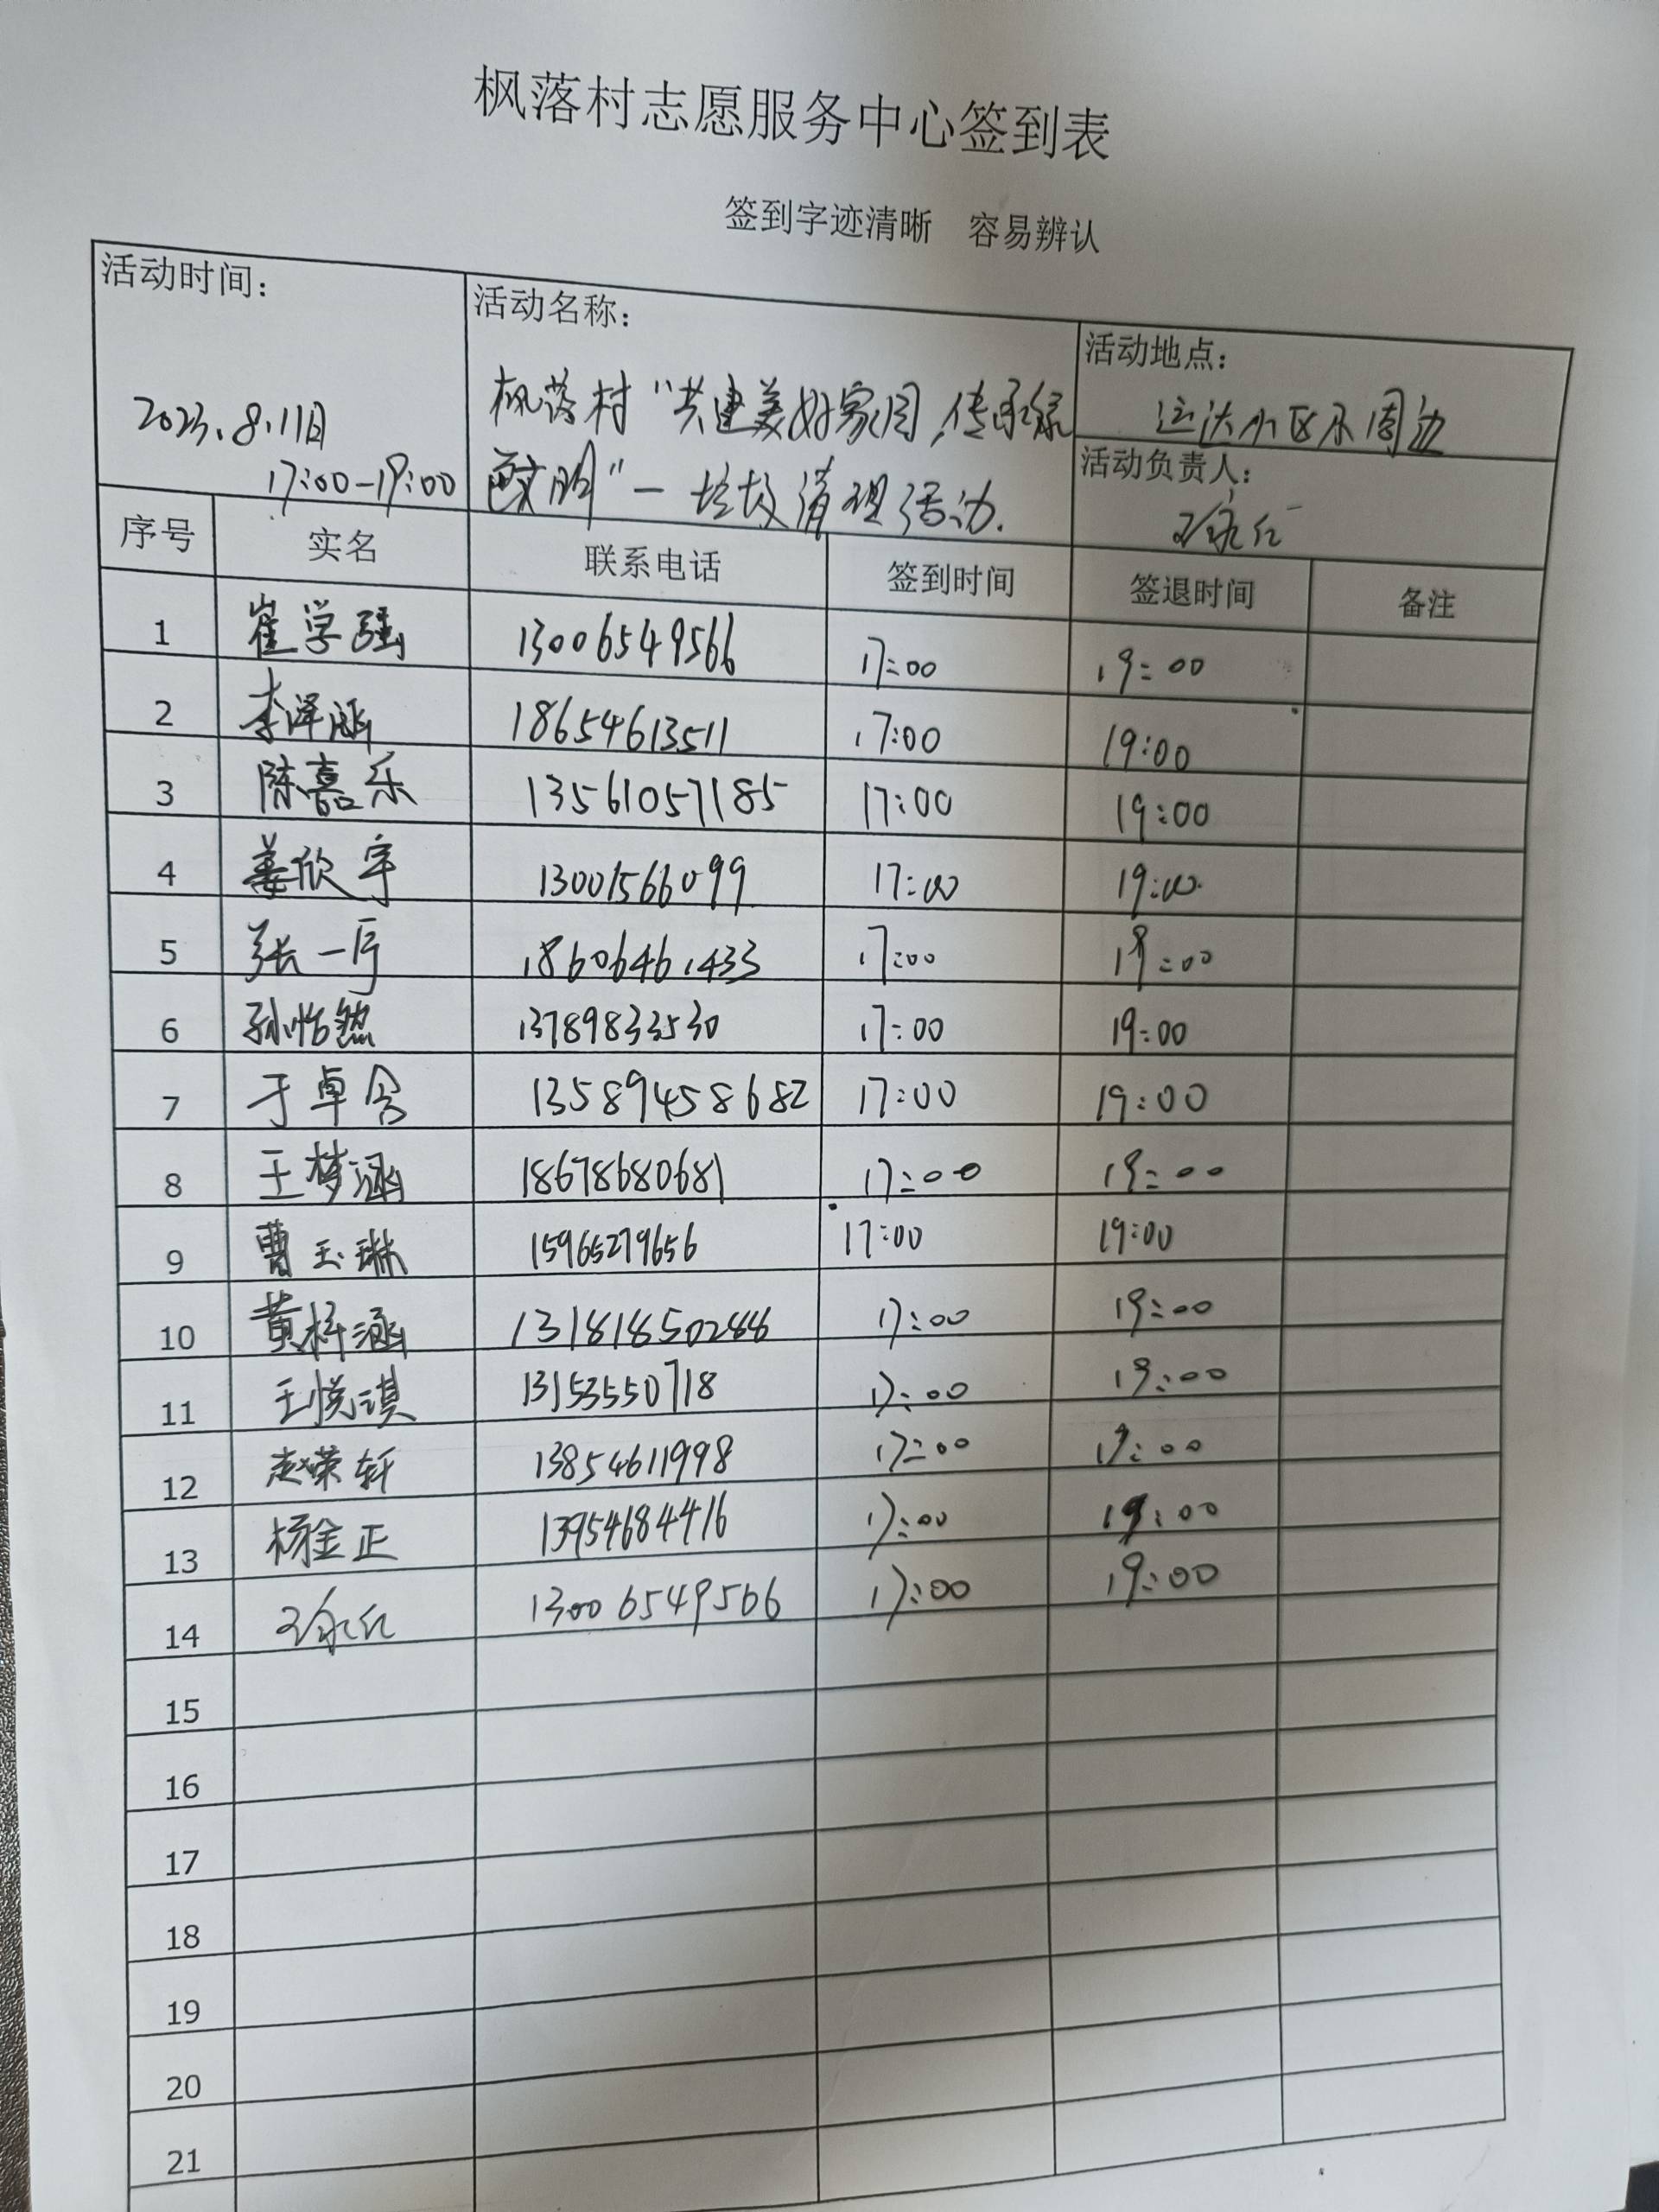 枫落村志愿服务中心签到表
签到字迹清晰 容易辨认
活动时间： 活动名称： 活动地点：
2023.8.11日 枫落村“共建美好家园,传承绿 运达小区及周边
17:00-19:00 色文明”一垃圾清理活动. 活动负责人：
王永红
序号 实名 联系电话 签到时间 签退时间 备注
1 崔学强 13006549566 17:00 19:00
2 李泽涵 18654613511 17:00 19:00
3 陈嘉乐 13561057185 17:00 19:00
4 姜欣宇 13001566099 17:00 19:00
5 张一 18606461433 17:00 19:00
6 孙怡然 13789833530 17:00 19:00
7 于卓含 13589458682 17:00 19:00
8 王梦涵 18678680681 17:00 19:00
9 曹玉琳 15965279656 17:00 19:00
10 黄梓涵 13181850288 17:00 19:00
11 王悦淇 13153550718 17:00 19:00
12 赵荣轩 13854611998 17:00 19:00
13 杨金正 13954684416 17:00 19:00
14 王永红 13006549566 17:00 19:00
15
16
17
18
19
20
21